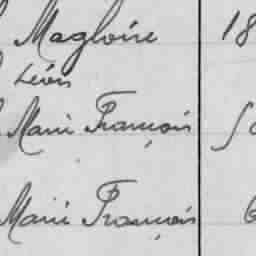 Magloire 18
Léon
Marie François
Marie François 6